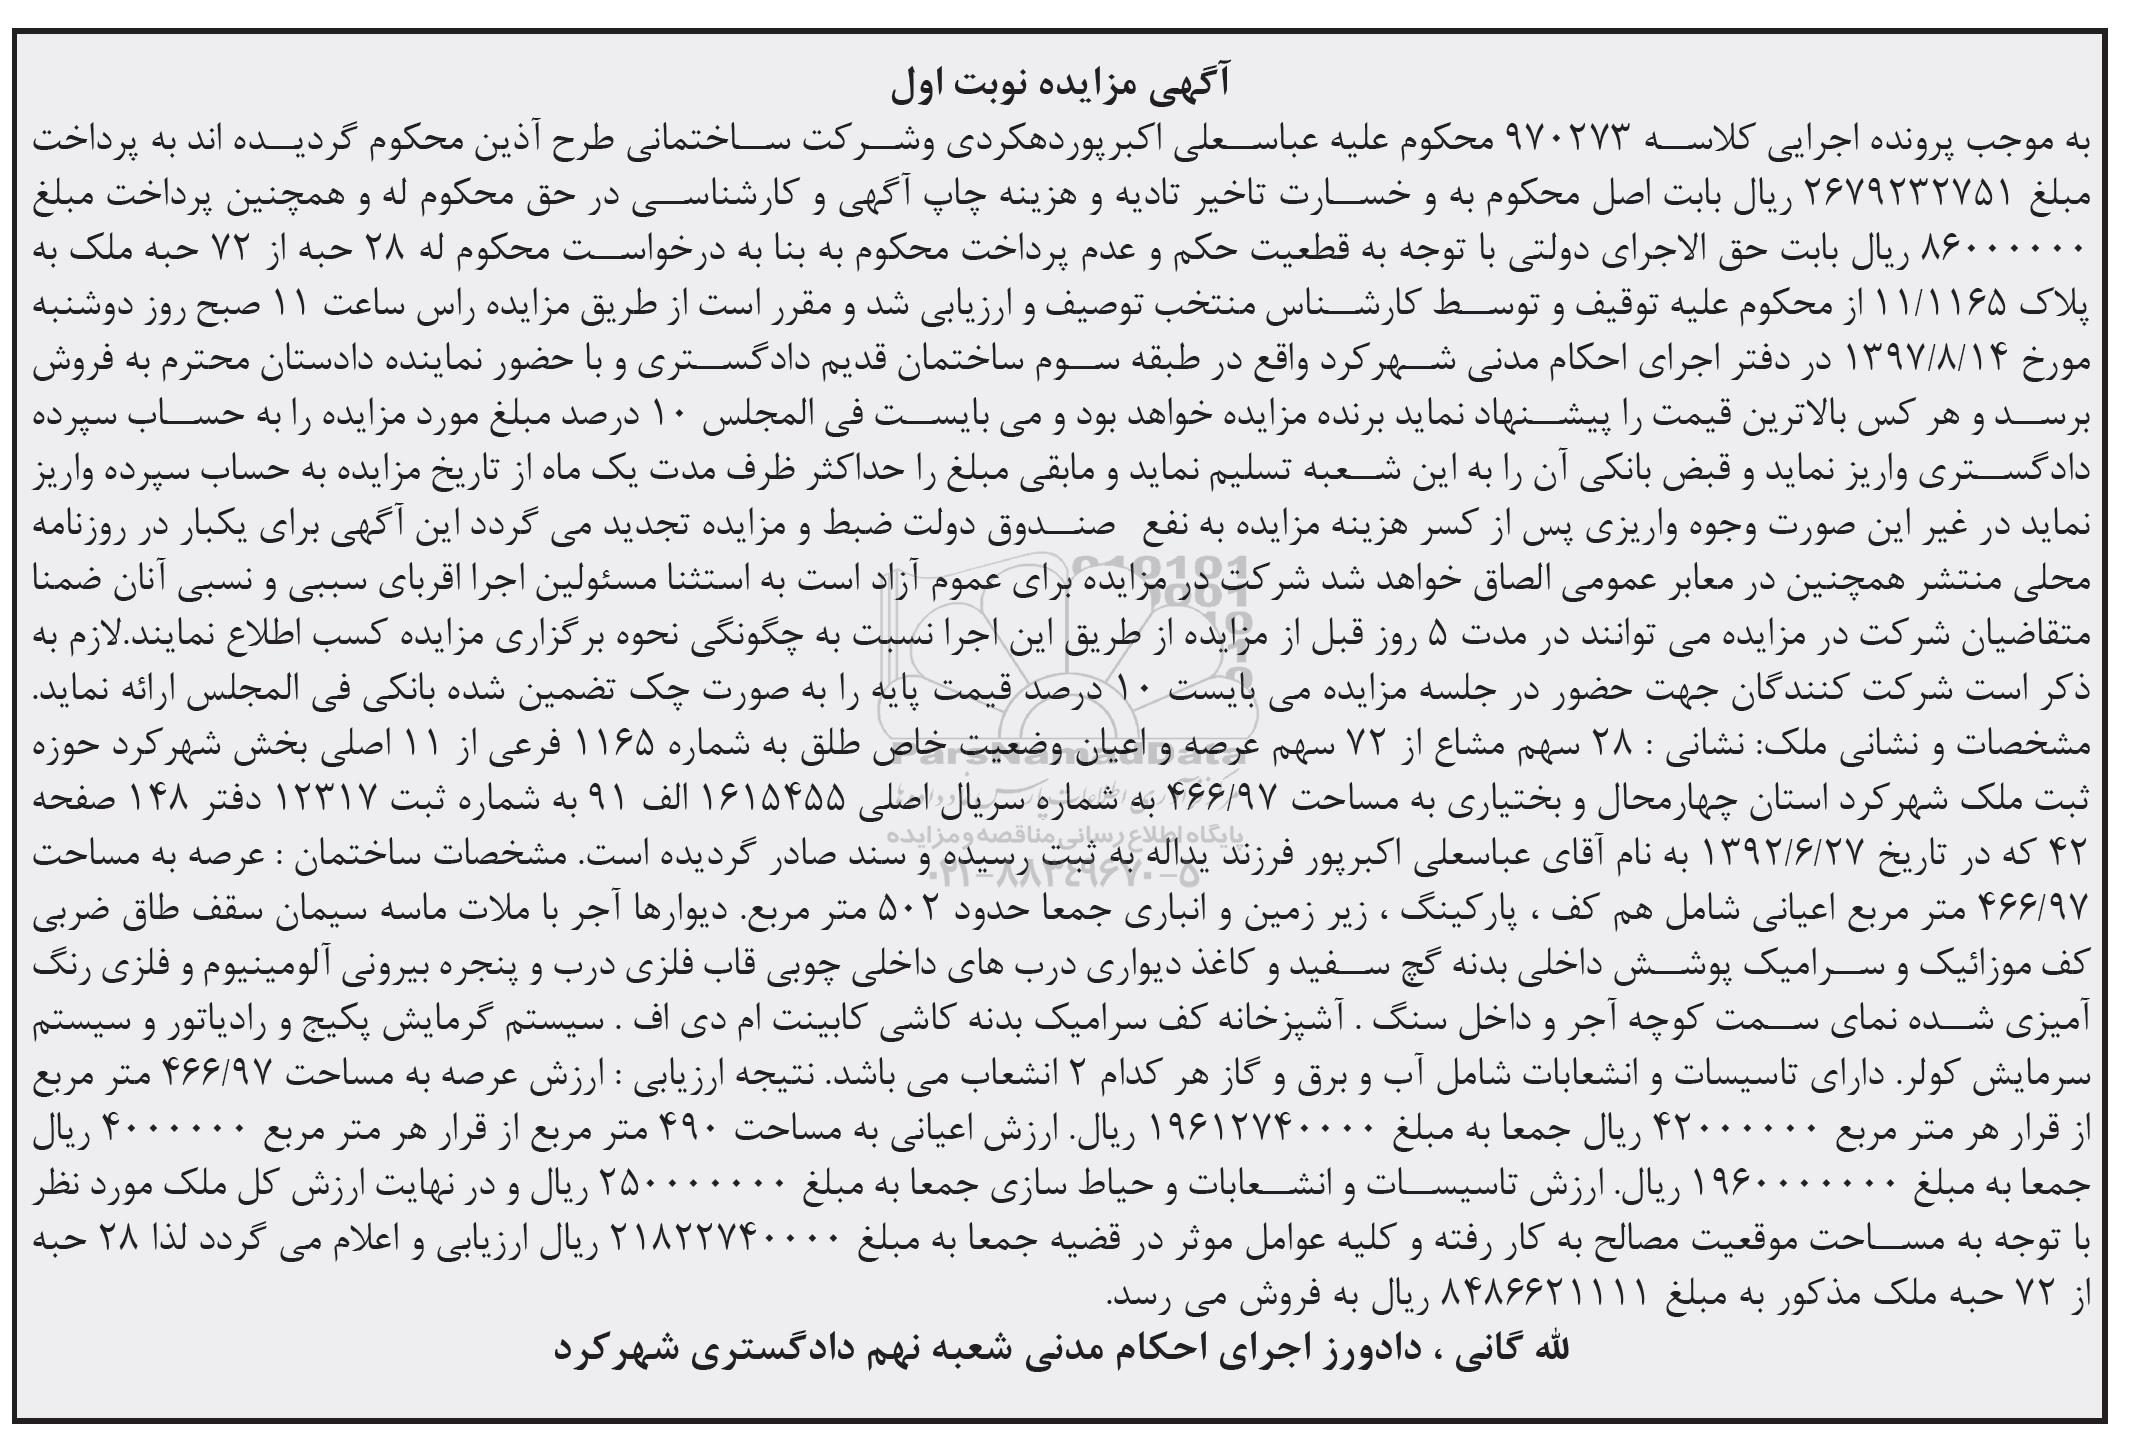 آگهی مزایده نوبت اول
به موجب پرونده اجرایی کلاسه ۹۷۰۲۷۳ محکوم علیه عباسعلی اکبرپوردهکردی وشرکت ساختمانی طرح آذین محکوم گردیده اند به پرداخت
مبلغ ۲۶۷۹۲۳۲۷۵۱ ریال بابت اصل محکوم به و خسارت تاخیر تادیه و هزینه چاپ آگهی و کارشناسی در حق محکوم له و همچنین پرداخت مبلغ
۸۶۰۰۰۰۰۰ ریال بابت حق الاجرای دولتی با توجه به قطعیت حکم و عدم پرداخت محکوم به بنا به درخواست محکوم له ۲۸ حبه از ۷۲ حبه ملک به
پلاک ۱۱/۱۱۶۵ از محکوم علیه توقیف و توسط کارشناس منتخب توصیف و ارزیابی شد و مقرر است از طریق مزایده راس ساعت ۱۱ صبح روز دوشنبه
مورخ ۱۳۹۷/۸/۱۴ در دفتر اجرای احکام مدنی شهرکرد واقع در طبقه سوم ساختمان قدیم دادگستری و با حضور نماینده دادستان محترم به فروش
برسد و هر کس بالاترین قیمت را پیشنهاد نماید برنده مزایده خواهد بود و می بایست فی المجلس ۱۰ درصد مبلغ مورد مزایده را به حساب سپرده
دادگستری واریز نماید و قبض بانکی آن را به این شعبه تسلیم نماید و مابقی مبلغ را حداکثر ظرف مدت یک ماه از تاریخ مزایده به حساب سپرده واریز
نماید در غیر این صورت وجوه واریزی پس از کسر هزینه مزایده به نفع صندوق دولت ضبط و مزایده تجدید می گردد این آگهی برای یکبار در روزنامه
محلی منتشر همچنین در معابر عمومی الصاق خواهد شد شرکت در مزایده برای عموم آزاد است به استثنا مسئولین اجرا اقربای سببی و نسبی آنان ضمنا
متقاضیان شرکت در مزایده می توانند در مدت ۵ روز قبل از مزایده از طریق این اجرا نسبت به چگونگی نحوه برگزاری مزایده کسب اطلاع نمایند.لازم به
ذکر است شرکت کنندگان جهت حضور در جلسه مزایده می بایست ۱۰ درصد قیمت پایه را به صورت چک تضمین شده بانکی فی المجلس ارائه نماید.
مشخصات و نشانی ملک: نشانی : ۲۸ سهم مشاع از ۷۲ سهم عرصه و اعیان وضعیت خاص طلق به شماره ۱۱۶۵ فرعی از ۱۱ اصلی بخش شهرکرد حوزه
ParsNamadData
ثبت ملک شهرکرد استان چهارمحال و بختیاری به مساحت ۴۶۶/۹۷ به شماره سریال اصلی ۱۶۱۵۴۵۵ الف ۹۱ به شماره ثبت ۱۲۳۱۷ دفتر ۱۴۸ صفحه
پایگاه اطلاع رسانی مناقصه و مزایده
۴۲ که در تاریخ ۱۳۹۲/۶/۲۷ به نام آقای عباسعلی اکبرپور فرزند یداله به ثبت رسیده و سند صادر گردیده است. مشخصات ساختمان : عرصه به مساحت
۰۲۱-۸۸۳۴۹۶۷۰-۵
۴۶۶/۹۷ متر مربع اعیانی شامل هم کف ، پارکینگ ، زیر زمین و انباری جمعا حدود ۵۰۲ متر مربع. دیوارها آجر با ملات ماسه سیمان سقف طاق ضربی
کف موزائیک و سرامیک پوشش داخلی بدنه گچ سفید و کاغذ دیواری درب های داخلی چوبی قاب فلزی درب و پنجره بیرونی آلومینیوم و فلزی رنگ
آمیزی شده نمای سمت کوچه آجر و داخل سنگ . آشپزخانه کف سرامیک بدنه کاشی کابینت ام دی اف . سیستم گرمایش پکیج و رادیاتور و سیستم
سرمایش کولر. دارای تاسیسات و انشعابات شامل آب و برق و گاز هر کدام ۲ انشعاب می باشد. نتیجه ارزیابی : ارزش عرصه به مساحت ۴۶۶/۹۷ متر مربع
از قرار هر متر مربع ۴۲۰۰۰۰۰۰ ریال جمعا به مبلغ ۱۹۶۱۲۷۴۰۰۰۰ ریال. ارزش اعیانی به مساحت ۴۹۰ متر مربع از قرار هر متر مربع ۴۰۰۰۰۰۰ ریال
جمعا به مبلغ ۱۹۶۰۰۰۰۰۰۰ ریال. ارزش تاسیسات و انشعابات و حیاط سازی جمعا به مبلغ ۲۵۰۰۰۰۰۰۰ ریال و در نهایت ارزش کل ملک مورد نظر
با توجه به مساحت موقعیت مصالح به کار رفته و کلیه عوامل موثر در قضیه جمعا به مبلغ ۲۱۸۲۲۷۴۰۰۰۰ ریال ارزیابی و اعلام می گردد لذا ۲۸ حبه
از ۷۲ حبه ملک مذکور به مبلغ ۸۴۸۶۶۲۱۱۱۱ ریال به فروش می رسد.
لله گانی ، دادورز اجرای احکام مدنی شعبه نهم دادگستری شهرکرد